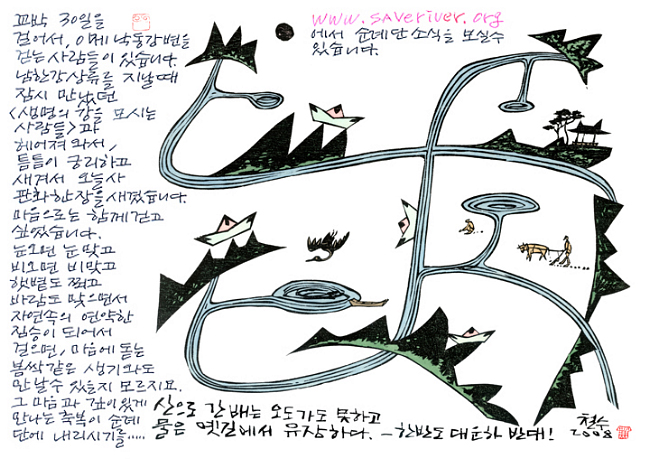 꼬박 30일을
걸어서, 이제 낙동강변을
걷는 사람들이 있습니다.
남한강 상류를 지날 때
잠시 만났던
<생명의 강을 모시는
사람들>과
헤어져 와서,
틈틈이 궁리하고
새겨서 오늘사
판화 한 장을 새겼습니다.
마음으로는 함께 걷고
싶었습니다.
눈오면 눈 맞고
비오면 비맞고
햇볕도 쬐고
바람도 맞으면서
자연속의 연약한
짐승이 되어서
걸으면, 마음에 돋는
봄싹같은 생기와도
만날 수 있을지 모르지요.
그 마음과 깊이있게
만나는 축복이 순례
단에 내리시기를.....
www.saveriver.org
에서 순례단 소식을 보실수
있습니다.
산으로 간 배는 오도가도 못하고
물은 옛길에서 유장하다. - 한반도 대운하 반대!
철수
2008